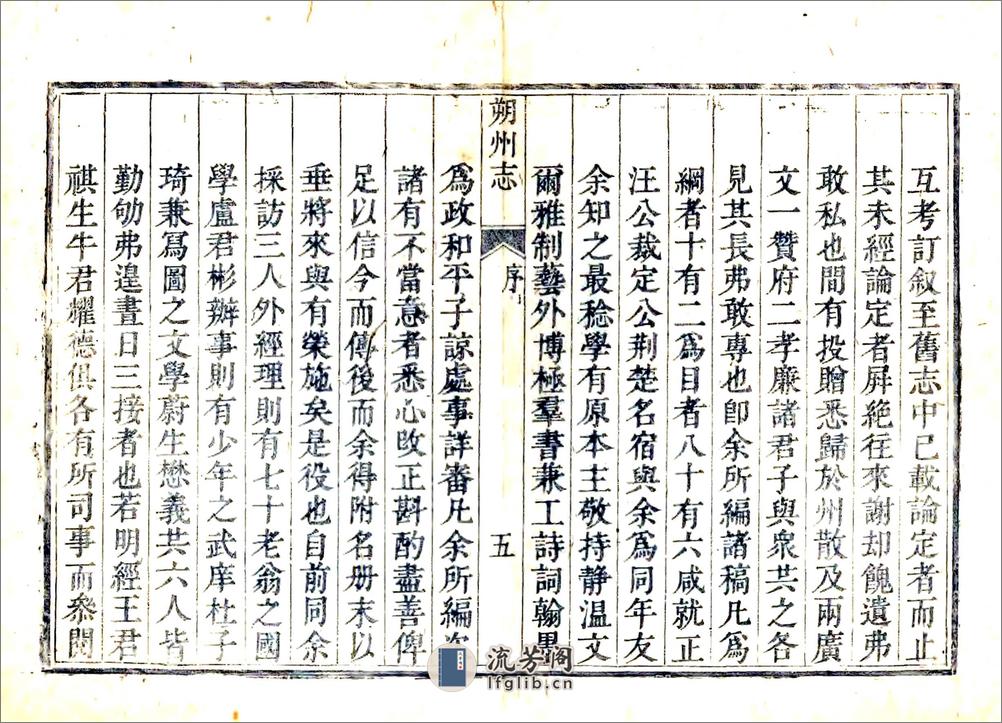 互考訂叙至舊志中已載論定者而止
其未經論定者屏絕往來謝却餽遺弗
敢私也間有投贈悉歸於州散及兩廣
文一贊府二孝廉諸君子與衆共之各
見其長弗敢專也卽余所編諸稿凡爲
綱者十有二爲目者八十有六咸就正
汪公裁定公荆楚名宿與余爲同年友
余知之最稔學有原本主敬持静温文
爾雅制藝外博極羣書兼工詩詞翰墨
朔州志
序
五
爲政和平子諒處事詳審凡余所編次
諸有不當意者悉心改正斟酌盡善俾
足以信今而傳後而余得附名册末以
垂將來與有榮施矣是役也自前同余
採訪三人外經理則有七十老翁之國
學盧君彬辦事則有少年之武庠杜子
琦兼寫圖之文學蔚生懋義共六人皆
勤劬弗遑晝日三接者也若明經王君
祺生牛君耀德俱各有所司事而叅閱
流芳阁
lfglib.cn